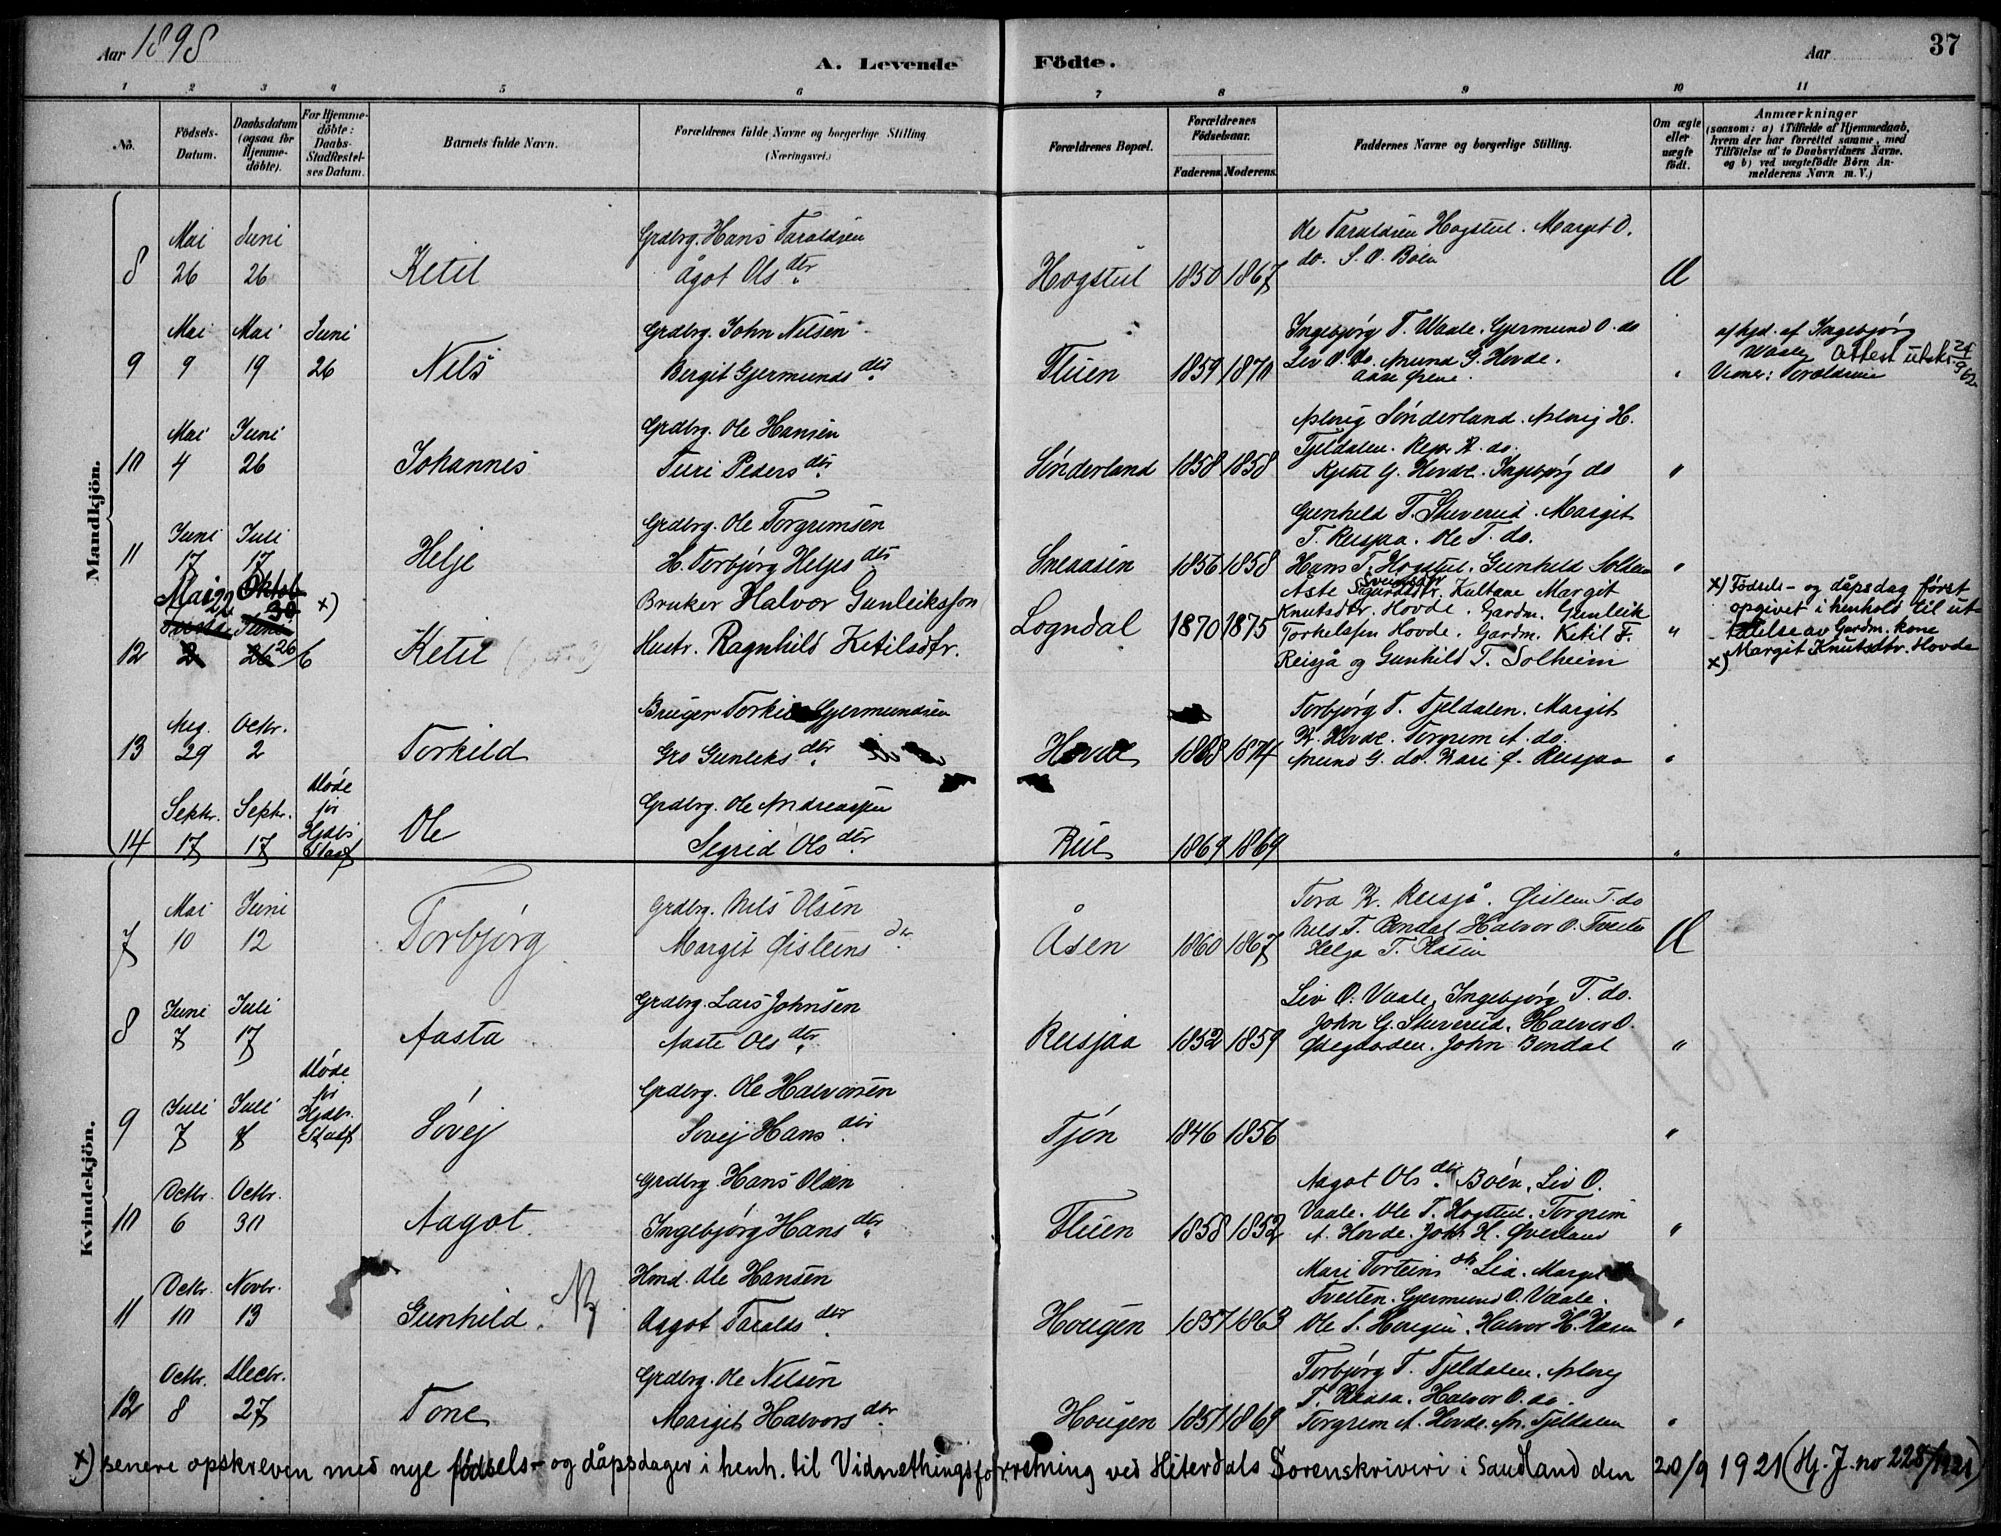 Aar 1898
A. Levende Födte.
Aar
37
1 2 3 4 5 6 7 8 9 10 11
No.
Födsels-Datum.
Daabsdatum (ogsaa for Hjemmedöbte).
For Hjemmedöbte: Daabs-Stadfæstelses Datum.
Barnets fulde Navn.
Forældrenes fulde Navne og borgerlige Stilling (Næringsvei.)
Forældrenes Bopæl.
Forældrenes Födselsaar.
Faderens Moderens
Faddernes Navne og borgerlige Stilling.
Om ægte eller uægte födt.
Anmærkninger
(saasom: a) i Tilfælde af Hjemmedaab, hvem der har forrettet samme, med Tilföielse af to Daabsvidners Navne, og b) ved uægtefödte Börn Anmelderens Navn m. V.)
Mandkjön.
8 Mai 26 Juni 26 Ketil
Grdbrg. Hans Taraldsen
Ågot Olsdtr.
Hogstul 1850 1867
Taraldsen Hogstul. Margit O.
do. S. O. Böen
9 Mai 9 Mai 19 Juni 26 Nils
Grdbrg. John Nilsen
Bergit Gjermundsdtr.
Fluen 1859 1870
Ingebjörg T. Waale. Gjermund O. do
Liv O. do. Amund G. Hovde.
Aase
af Ingebjørg
Waale Attest utskr. 24/9 62
Forældrene
10 Mai 4 Juni 26 Johannes
Grdbrg. Ole Hansen
Turi Pedersdtr.
Sönderland 1858 1858 "
Aslaug Sönderland. Aslaug H.
Tjeldalen. R. do.
Kjetil G. Hovde. Ingebjørg do
11 Juni 17 Juli 17 Helje
Grdbrg. Ole Torgrimsen
H. Torbjørg Heljesdtr.
Sneaasen 1856 1858 "
Gunhild T. Skuverud. Margit
T. Reisjaa. Ole T. do.
Hans T. Hogstul. Gunhild
12 Mai 22 Oktob 30 x) 2 Juni 26 26/6 Ketil
Bruker Halvor Gunleiksson
Hustr. Ragnhild Ketilsdtr.
Logndal 1870 1875 "
Åste Sveinsdtr. Kultane Margit
Knutsdtr. Hovde. Gardm. Gunleik
Torkelssen Hovde. Gardm. Ketil F.
Reisjå og Gunhild T. Solheim
x) Födsels- og dåpsdag først
opgivet i henhold til ut-
talelse av Gardm. kone
Margit Knutsdtr. Hovde
x)
13 Aug. 29 Octbr. 2 Torkild
Bruger Torkil Gjermundsen
Gro Gunleksdtr.
Hovde 1868 1874
Torbjørg T. Tjeldalen. Margit
K. Hovde. Torgrim A. do.
Amund G. do. Kari Reisjaa
14 Septbr. 17 Septbr. 17 Döde för Hjdbs Stadf Ole
Grdbrg. Ole Andreassen
Sigrid Olsdtr.
Rue 1869 1869 "
Kvindekjön.
7 Mai 10 Juni 12 Torbjørg
Grdbrg. Nils Olsen
Margit Östensdtr.
Åsen 1860 1867
Tora K. Reisjå. Östen T. do
Nils T. Bondal Halvor O. Tveiten
Helga T. Kåsin
8 Juni 7 Juli 17 Aasta
Grdbrg. Lars Johnsen
Aaste Olsdtr.
Reisjaa 1852 1859 "
Liv O. Vaale, Ingebjörg T. do.
John G. Skuverud. Halvor O.
Ödegaarden. John Bondal
9 Juli 7 Juli 8 Döde för Hjdbr. Stadf Sövej
Grdbrg. Ole Halvorsen
Sovej Hansdtr.
Tjön 1846 1856 "
10 Octbr. 6 Octbr. 30 Aagot.
Grdbrg. Hans Olsen
Ingebjörg Hansdtr.
Fluen 1858 1852 "
Aagot Olsdtr. Böen, Liv O.
Vaale. Ole T. Hogstul. Torgrim
A. Hovde. Joh H. Överland
11 Octbr. 10 Novbr. 13 Gunhild.
Hmd. Ole Hansen
Aagot Taraldsdtr.
Hougen 1857 1863 "
Mari Torteinsdtr. Lia. Margit
Tveiten. Gjermund O. Vaale.
Ole S. Hougen. Halvor H. Kasin
12 Octbr. 8 Decbr. 27 Tone
Grdbrg. Ole Nilsen
Margit Halvorsdtr.
Hougen 1857 1869 "
Torbjørg T. Tjeldalen. Aslaug
T. Raasa. Halvor O. do.
Torgrim A. Hovde. An. Tjeldalen
x) senere opskreven med nye fødsels- og dåpsdager i henh. til Vidnethingsforretning ved Hiterdals Sorenskriveri i Saudland den 20/9 1921 (Hj. J. no 228/1921)